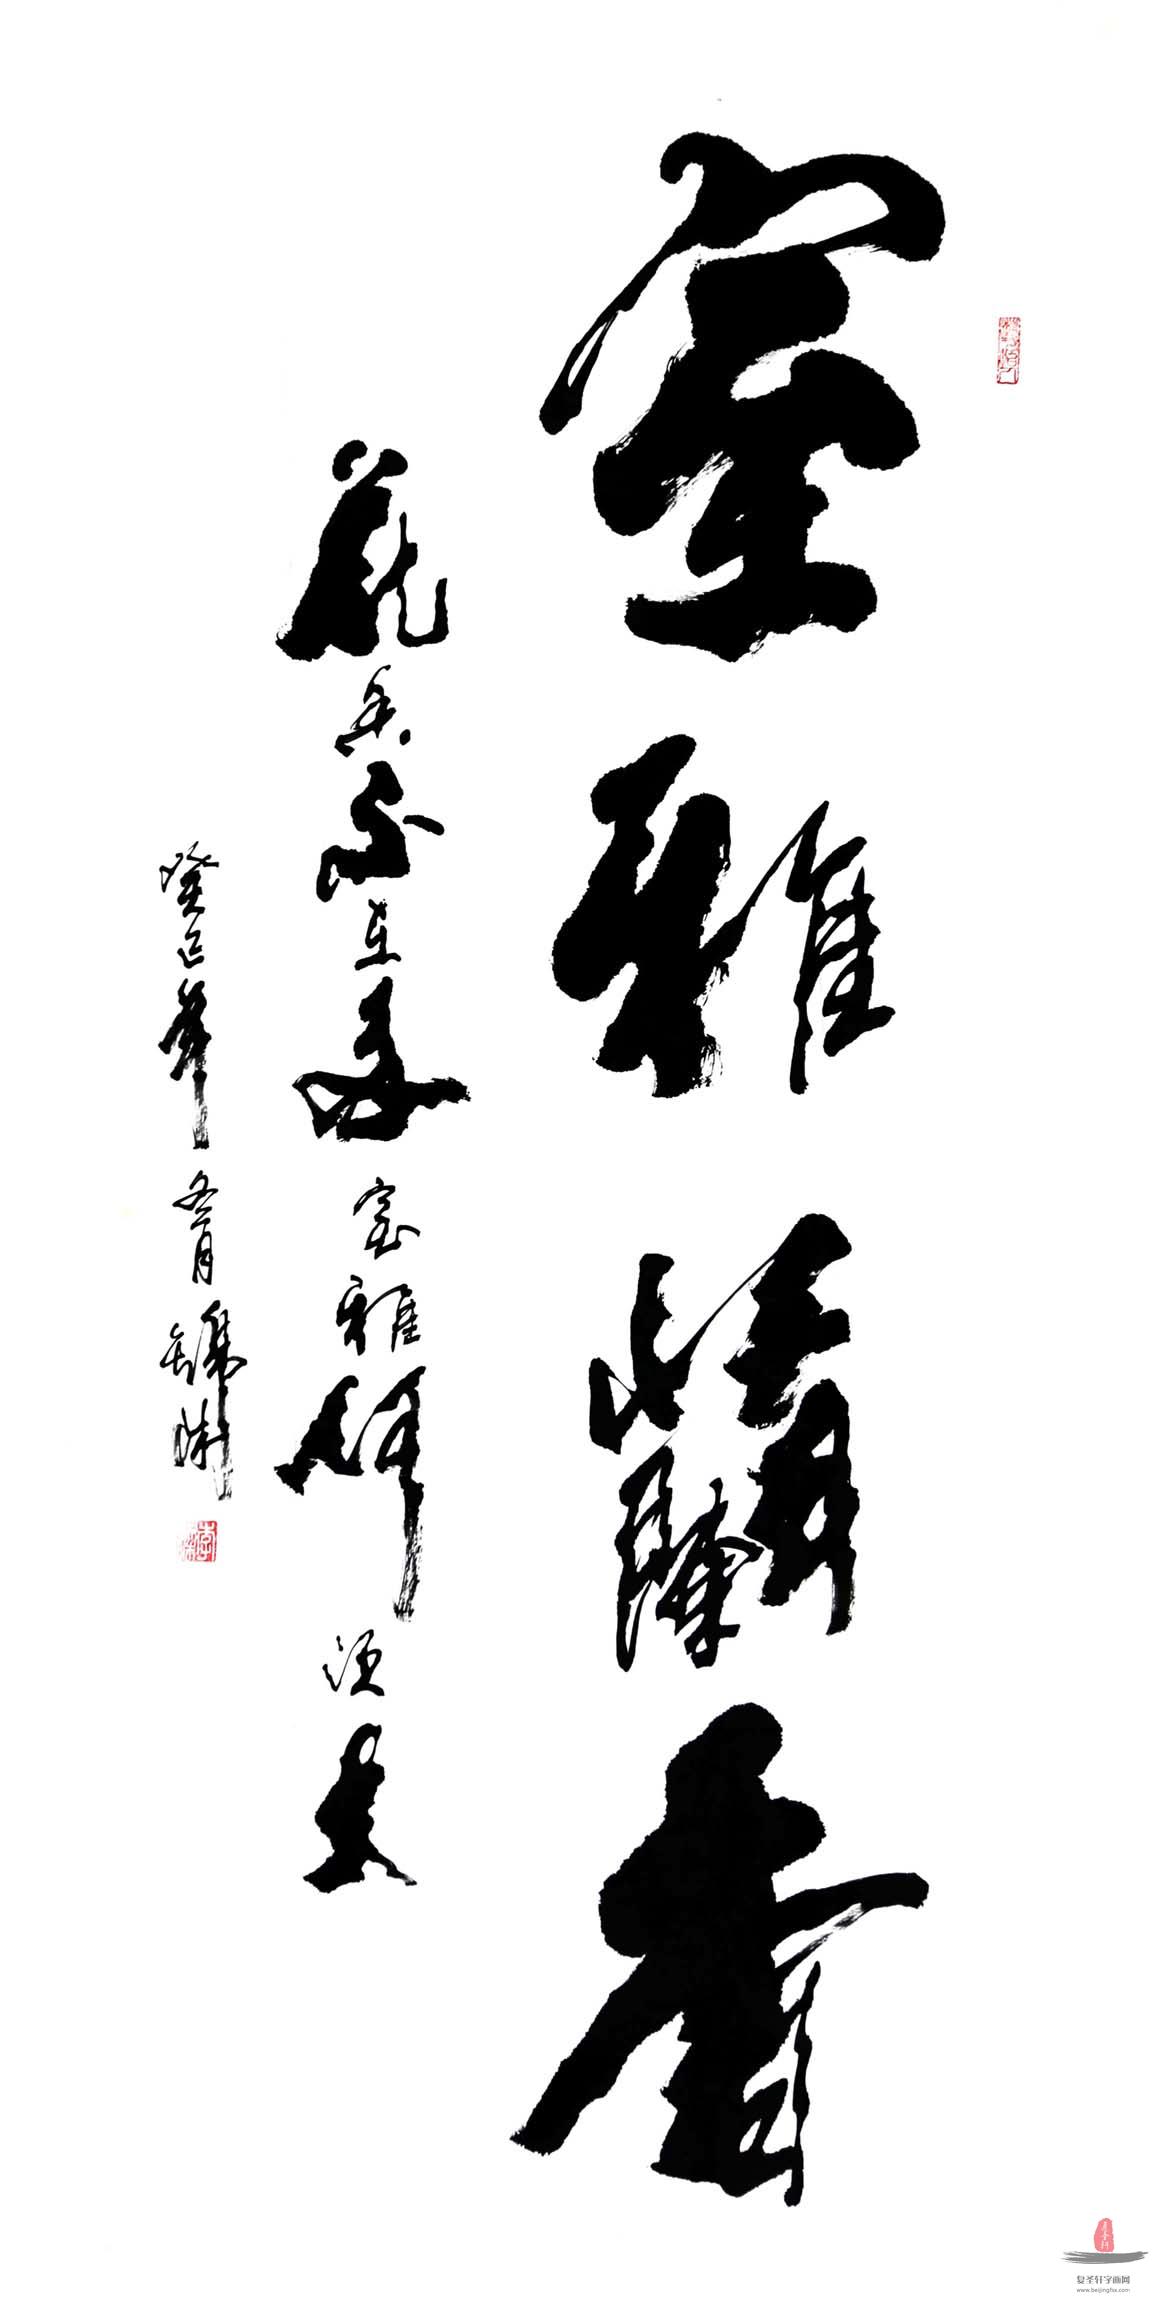 室雅蘭香
花香不在多室雅何須大
癸巳年冬月
复圣轩字画网
www.beijingfsx.com